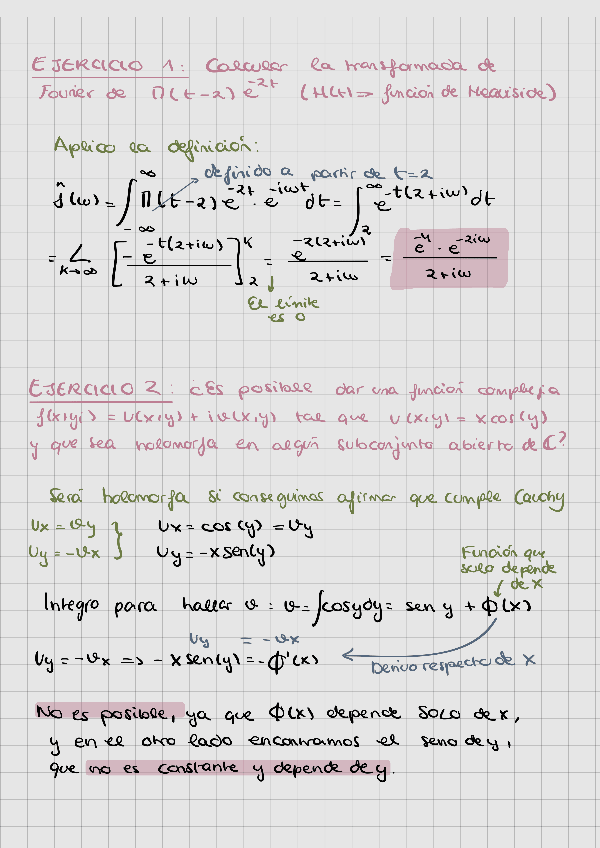 EJERCICIO 1: Calcular la transformada de
Fourier de H(t-2) e^{-2t} (H(t) => función de Heaviside)
Aplico la definición:
definido a partir de t=2
f̂(ω) = ∫_{-∞}^{∞} H(t-2) e^{-2t} · e^{-iωt} dt = ∫_{2}^{∞} e^{-t(2+iω)} dt
= L_{k→∞} [ -e^{-t(2+iω)} / (2+iω) ]_{2}^{k} = e^{-2(2+iω)} / (2+iω) = e^{-4} · e^{-2iω} / (2+iω)
El límite
es 0
EJERCICIO 2: ¿Es posible dar una función compleja
f(x+yi) = u(x,y) + iv(x,y) tal que u(x,y) = x cos(y)
y que sea holomorfa en algún subconjunto abierto de ℂ?
Será holomorfa si conseguimos afirmar que cumple Cauchy
Ux = vy } Ux = cos(y) = Vy
Uy = -vx } Uy = -x sen(y)
Función que
solo depende
de x
Integro para hallar v: v = ∫cosydy = sen y + ϕ(x)
Uy = -vx
Uy = -vx => -x sen(y) = -ϕ'(x)
Derivo respecto de x
No es posible, ya que ϕ(x) depende solo de x,
y en el otro lado encontramos el seno de y,
que no es constante y depende de y.